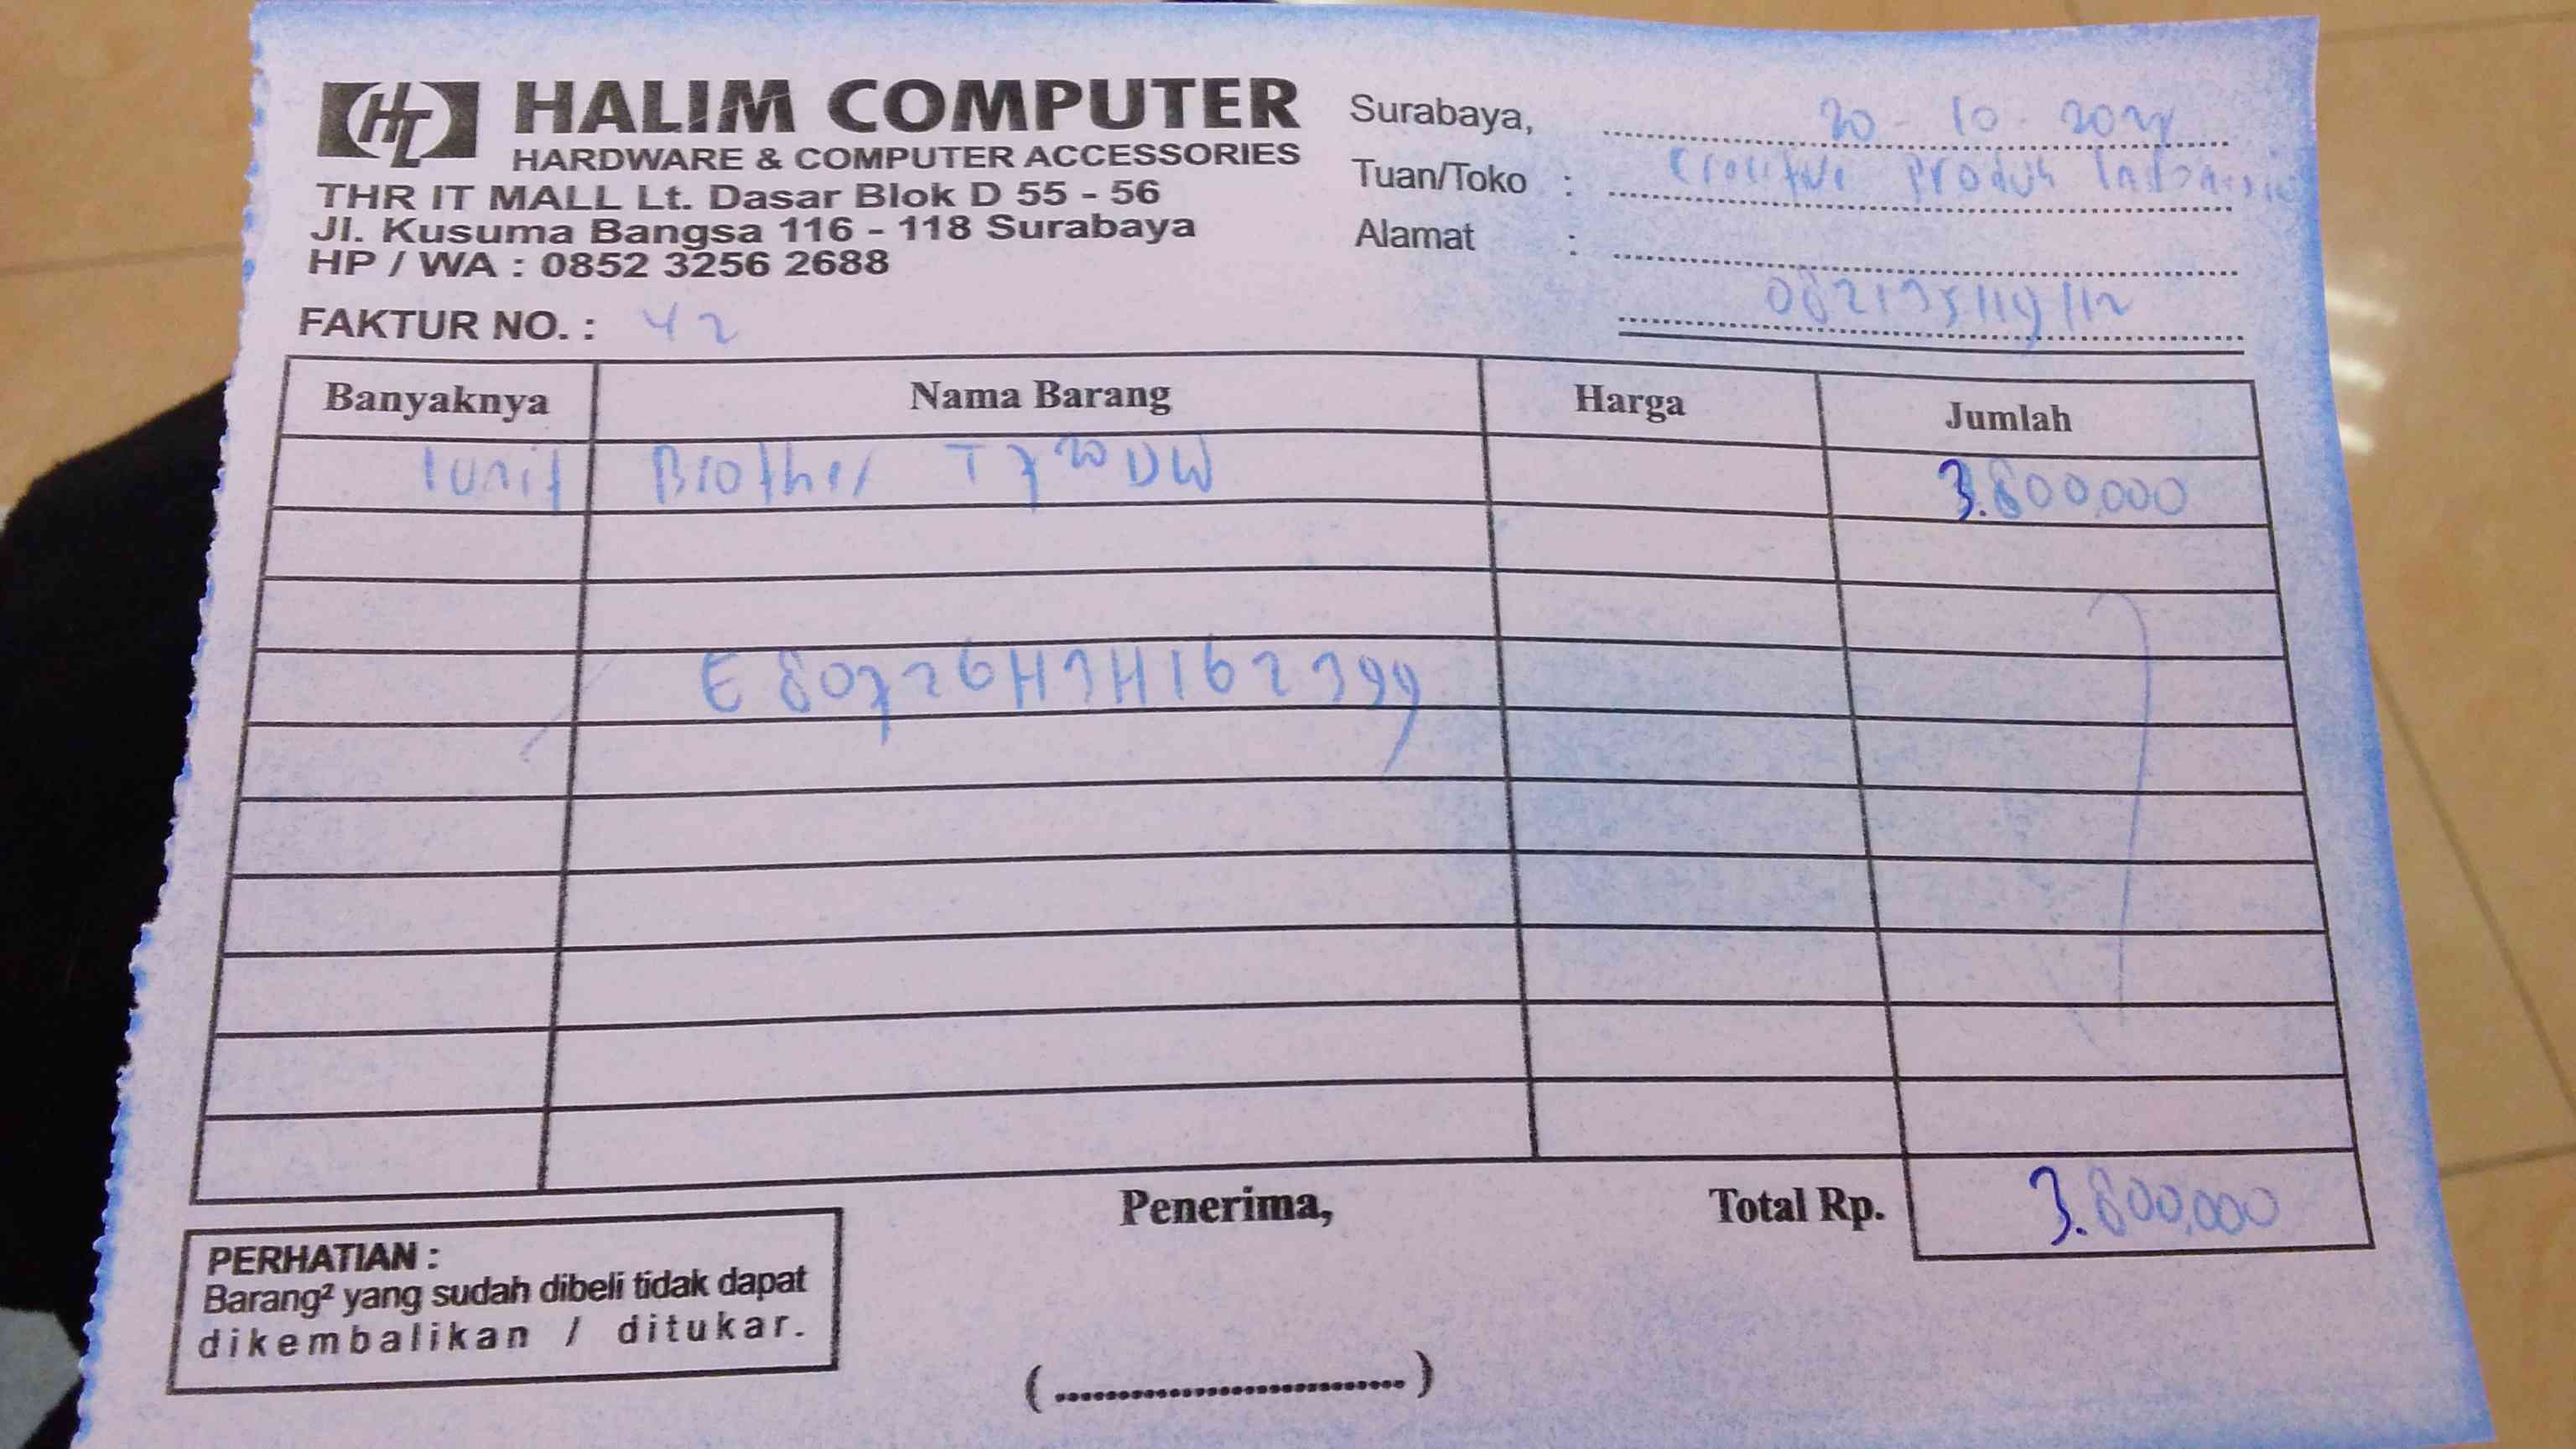 HL HALIM COMPUTER
HARDWARE & COMPUTER ACCESSORIES
THR IT MALL Lt. Dasar Blok D 55 - 56
Jl. Kusuma Bangsa 116 - 118 Surabaya
HP / WA : 0852 3256 2688
FAKTUR NO. : 42
Surabaya, 20 - 10 -
Tuan/Toko : Produk Indonesia
Alamat :
Banyaknya Nama Barang Harga Jumlah
1 unit Brother T720DW 3.800.000
E80726H3H162399
Penerima, Total Rp. 3.800.000
PERHATIAN :
Barang² yang sudah dibeli tidak dapat
dikembalikan / ditukar.
(..............................)